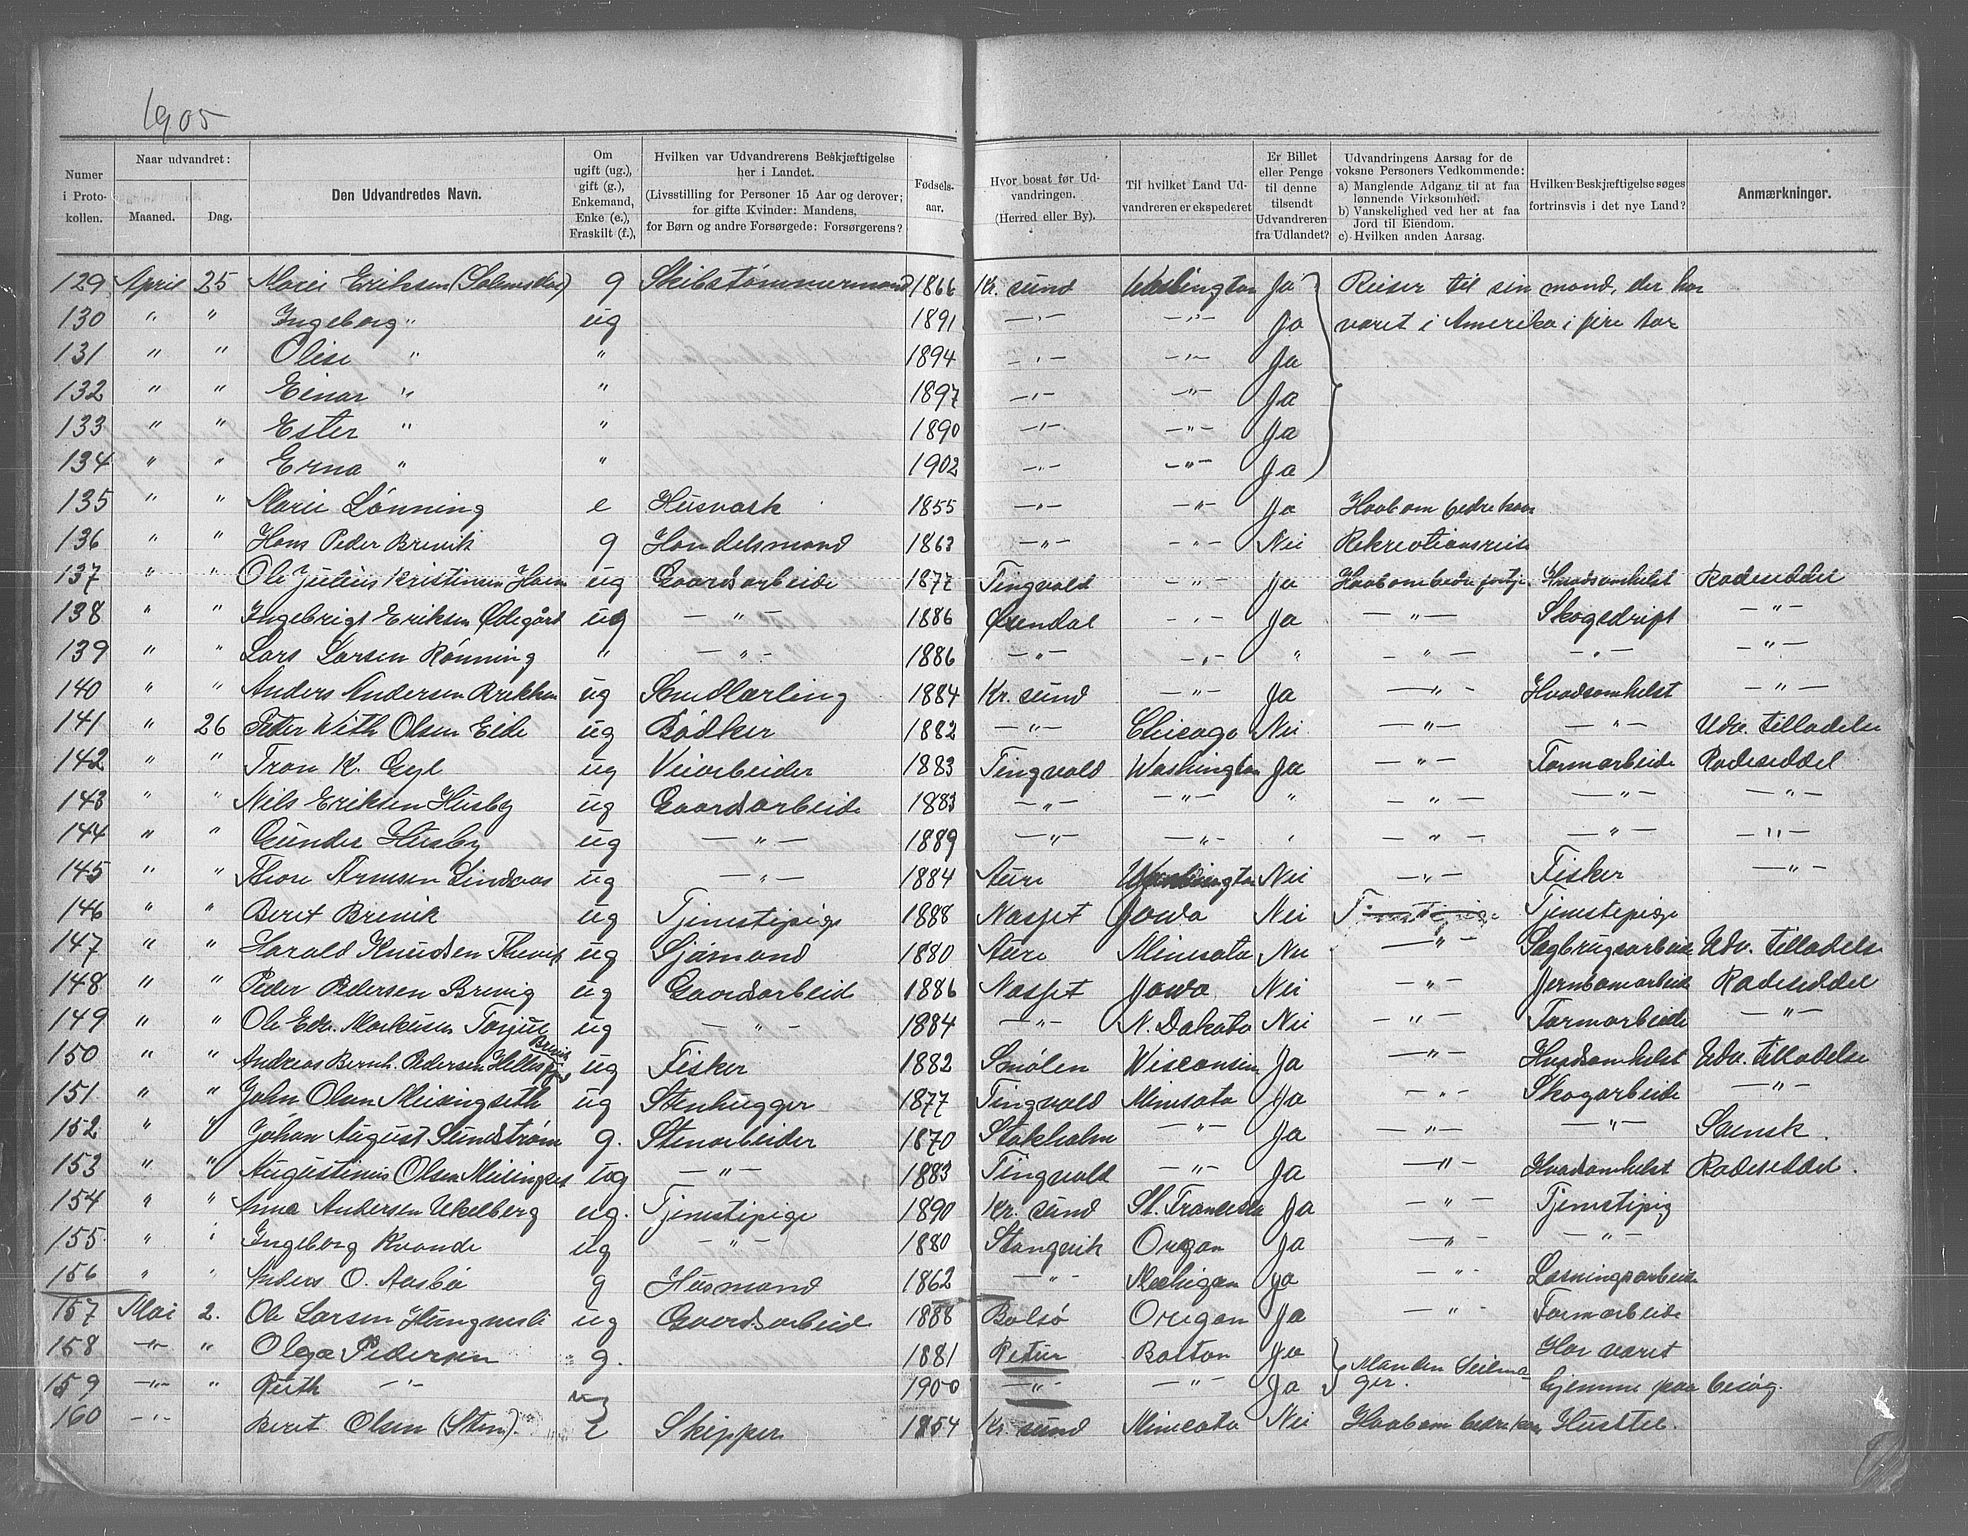 1905
Numer i Protokollen. | Naar udvandret: Maaned. | Dag. | Den Udvandredes Navn. | Om ugift (ug.), gift (g.), Enkemand, Enke (e.), Fraskilt (f.), | Hvilken var Udvandrerens Beskjæftigelse her i Landet. (Livsstilling for Personer 15 Aar og derover; for gifte Kvinder: Mandens, for Børn og andre Forsørgede: Forsørgerens? | Fødselsaar. | Hvor bosat før Udvandringen. (Herred eller By). | Til hvilket Land Udvandreren er ekspederet | Er Billet eller Penge til denne tilsendt Udvandreren fra Udlandet? | Udvandringens Aarsag for de voksne Personers Vedkommende: a) Manglende Adgang til at faa lønnende Virksomhed. b) Vanskelighed ved her at faa Jord til Eiendom. c) Hvilken anden Aarsag. | Hvilken Beskjæftigelse søges fortrinsvis i det nye Land? | Anmærkninger.
129 April 25 Marie Eriksen g Skibstømmermand 1866 Kr. sund Washington Ja Reiser til sin mand, der har
130 " " Ingeborg " ug 1891 —"— —"— Ja været i Amerika i fire Aar
131 " " Olise " " 1894 —"— —"— Ja
132 " " Einar " " 1897 —"— —"— Ja
133 " " Ester " " 1890 —"— —"— Ja
134 " " Erna " " 1902 —"— —"— Ja
135 " " Marie Lønning e Husvask 1855 —"— —"— Ja Haab om bedre kaar
136 " " Hans Peder Brevik g Handelsmand 1863 —"— —"— Nei Rekreationsreise
137 " " Ole Julius Kristinsen ug Gaardsarbeide 1877 Tingvold —"— Ja Haab om bedre fortj. Hvadsomhelst Rodeseddel
138 " " Ingebrigt Eriksen Ødegård ug —"— 1886 Øxendal —"— Ja —"— Skogsdrift —"—
139 " " Lars Larsen Rønning " —"— 1886 —"— —"— " —"— —"— —"—
140 " " Anders Andersen ug Smedlærling 1884 Kr. sund —"— Ja —"— Hvadsomhelst —"—
141 " 26 Peder With Olsen Eide ug Bødker 1882 —"— Chicago Nei —"— —"— Udv. tilladelse
142 " " Tron K. Gyl ug Veiarbeider 1883 Tingvold Washington Ja —"— Farmarbeide Rodeseddel
143 " " Nils Eriksen Husby ug Gaardsarbeide 1883 —"— —"— " —"— —"— —"—
144 " " Gunder Husby ug —"— 1889 —"— —"— " —"— —"— —"—
145 " " Thore Arnesen Lindvas ug —"— 1884 Aure Washington Nei —"— Fisker —"—
146 " " Berit Brevik ug Tjenestepige 1888 Nasset Jowa Nei Tjenestepige
147 " " Harald Knudsen ug Sjømand 1880 Aure Minisota Nei —"— Sagbrugsarbeide Udv. tilladelse
148 " " Peder Pedersen Brevig ug Gaardsarbeide 1886 Nasset Jowa Nei —"— Jernbanarbeide Rodeseddel
149 " " Ole Edv. Markusen Torjul Brevik ug —"— 1884 —"— N. Dakota Nei —"— Farmarbeide —"—
150 " " Andreas Bernh. Pedersen ug Fisker 1882 Smølen Wisconsin Ja —"— Hvadsomhelst Udv. tilladelse
151 " " John Olsen Meisingseth ug Stenhugger 1877 Tingvold Minisota Ja —"— Skogarbeide —"—
152 " " Johan August Sundstrøm g. Stenarbeider 1870 Stokholm —"— Ja —"— —"— Svensk.
153 " " Augustinus Olsen Meisingset ug —"— 1883 Tingvold —"— Ja —"— Hvadsomhelst Rodeseddel.
154 " " Anna Andersen Ukelberg ug. Tjenestepige 1890 Kr. sund St. Francisko Ja —"— Tjenestepig
155 " " Ingeborg Kvande ug —"— 1880 Stangvik Oregon Ja —"— —"—
156 " " Anders O. Aasbø g Husmand 1862 —"— Mechigan Ja —"— Løsningsarbeide
157 Mai 2. Ole Larsen ug Gaardsarbeide 1888 Bolsø Oregon Ja —"— Farmarbeide
158 —"— " Olga Pedersen g. 1881 Retur Boston Ja Manden Seilmager. Har været
159 —"— " Ruth —"— ug 1900 —"— —"— Ja hjemme paa besøg.
160 —"— Berit Olsen (Sten). E Skipper 1854 Kr. sund Minisota Nei Haab om bedre kaar Husstel.